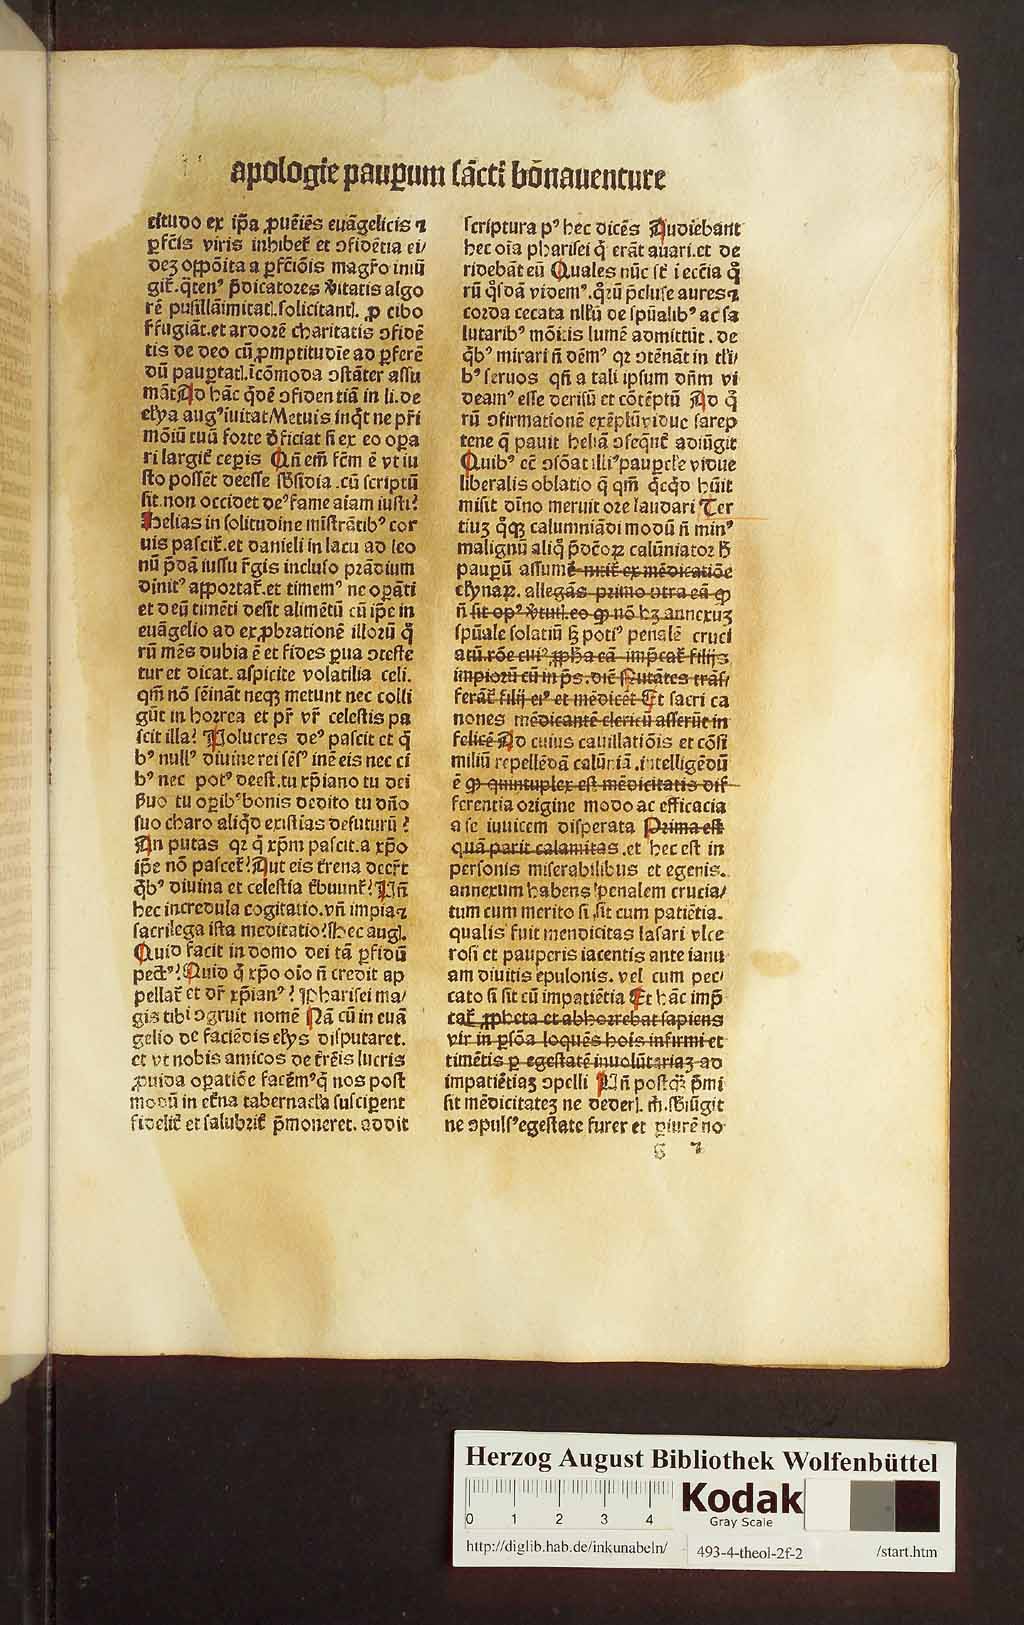 apologie paupum sācti bōnauenture
citudo ex ip̄a ꝓueiēs euāgelicis ⁊
ꝑfc̄is viris inhibet̄ et ↄfidētia ei/
deȝ oppōita a ꝑfc̄iōis magr̄o iniū
git̄. q̄tenꝰ p̄dicatores v̄itatis algo
rē pusillāimitatꝭ. solicitantꝭ. ꝓ cibo
r̄fugiāt. et ardorē charitatis ↄfidē
tis de deo cū ꝓmptitudīe ad ꝑferē
dū paupertatꝭ. īcōmoda ↄstāter assu
māt Ad hāc q̄dē ↄfidentiā in li. de
elỹa augꝰ iuitat Metuis inq̄t ne pr̄i
mōiū tuū forte d̄ficiat si ex eo oꝑa
ri largit̄ ceꝑis Qn̄ em̄ fc̄m ē vt iu
sto possēt deesse sb̄sidia. cū scriptū
sit. non occidet deꝰ fame aīam iusti?
Helias in solitudine mīstrātibꝰ cor
uis pascit̄. et danieli in lacu ad leo
nū p̄dā iussu r̄gis incluso prādium
dīnitꝰ apportat̄. et timemꝰ ne oꝑāti
et deū timēti desit alimētū cū ip̄e in
euāgelio ad exꝓbrationē illorū q̄
rū mēs dubia ē et fides ꝑua ↄteste
tur et dicat. aspicite volatilia celi.
qm̄ nō sēināt neqȝ metunt nec colli
gūt in horrea et pr̄ vr̄ celestis pa
scit illa? Volucres deꝰ pascit et q̄
bꝰ nullꝰ diuine rei sēsꝰ inē eis nec ci
bꝰ nec potꝰ deest. tu xp̄iano tu dei
s̄uo tu oꝑibꝰ bonis dedito tu dn̄o
suo charo aliqd̄ existīas defuturū?
An putas qꝛ q̄ xp̄m pascit. a xp̄o
ip̄e nō pascet̄? Aut eis t̄rena deer̄t
q̄bꝰ diuina et celestia t̄buunt̄? Vn̄
hec incredula cogitatio. vn̄ impia ⁊
sacrilega ista meditatio? hec augꝭ.
Quid facit in domo dei tā ꝑfidū
pectꝰ? Quid q̄ xp̄o oīo n̄ credit ap
pellat̄ et dr̄ xp̄ianꝰ? Pharisei ma/
gis tibi ↄgruit nomē Nā cū in euā
gelio de faciēdis elȳs disputaret.
et vt nobis amicos de t̄rēis lucris
ꝓuida oꝑatiōe facēmꝰ q̄ nos post
modū in et̄na tabernacl̄a susciꝑent
fidelit̄ et salubrit̄ p̄moneret. addit
scriptura pꝰ hec dicēs Audiebant
hec oīa pharisei q̄ erāt auari. et de
ridebāt eū Quales nūc st̄ ī ecc̄ia q̄
rū q̄sdā videmꝰ. q̄rū p̄cluse aures ⁊
corda cecata nllū de spūalibꝰ ac sa
lutaribꝰ mōitis lumē admittūt. de
q̄bꝰ mirari n̄ dēmꝰ qꝛ ↄtēnāt in tli/
bꝰ seruos qn̄ a tali ipsum dn̄m vi
deamꝰ esse derisū et cōtēptū Ad q̄
rū ↄfirmationē exēplū viduc sarep
tene q̄ pauit heliā ↄseq̄nt̄ adiūgit
Quibꝰ cē ↄsōat illiꝰ paupcl̄e vidue
liberalis oblatio q̄ qm̄ q̄cq̄d hūit
misit dīno meruit ore laudari Ter
tiuȝ q̄qȝ calumniādi modū n̄ minꝰ
malignū aliq̄ p̄dcōꝝ calūniator h̄
pauꝑū assumē nitit̄ ex mēdicatiōe
elȳnaꝝ. allegās primo ↄtra eā ꝙ
n̄ sit opꝰ v̄tutꝭ. eo ꝙ nō hȝ annexuȝ
spūale solatiū sȝ potiꝰ penalē cruci
atū. rōe cuiꝰ ꝓpha eā imp̄cat̄ filijs
impiorū cū in ps̄. dic̄ Nutātes trāf/
ferāt̄ filij eiꝰ et mēdicēt Et sacri ca
nones mēdicantē clericū asserūt in
felicē Ad cuius cauillatiōis et cōsi
miliū repellēdā calūniā. intelligēdū
ē ꝙ quintuplex est mēdicitatis dif
ferentia origine modo ac efficacia
a se inuicem disperata Prima est
quā parit calamitas. et hec est in
personis miserabilibus et egenis.
annexum habens penalem crucia/
tum cum merito si sit cum patiētia.
qualis fuit mendicitas lasari vlce
rosi et pauperis iacentis ante ianu
am diuitis epulonis. vel cum pec/
cato si sit cū impatiētia Et hāc imp̄
cat̄ ꝓpheta et abhorrebat sapiens
vir in ꝑsōa loquēs hoīs infirmi et
timētis ꝑ egestatē inuolūtariaȝ ad
impatiētiaȝ ↄpelli Vn̄ postqȝ p̄mi
sit mēdicitateȝ ne dederꝭ. m̄. sb̄iūgit
ne ↄpulsꝰ egestate furer et ꝑiurē no